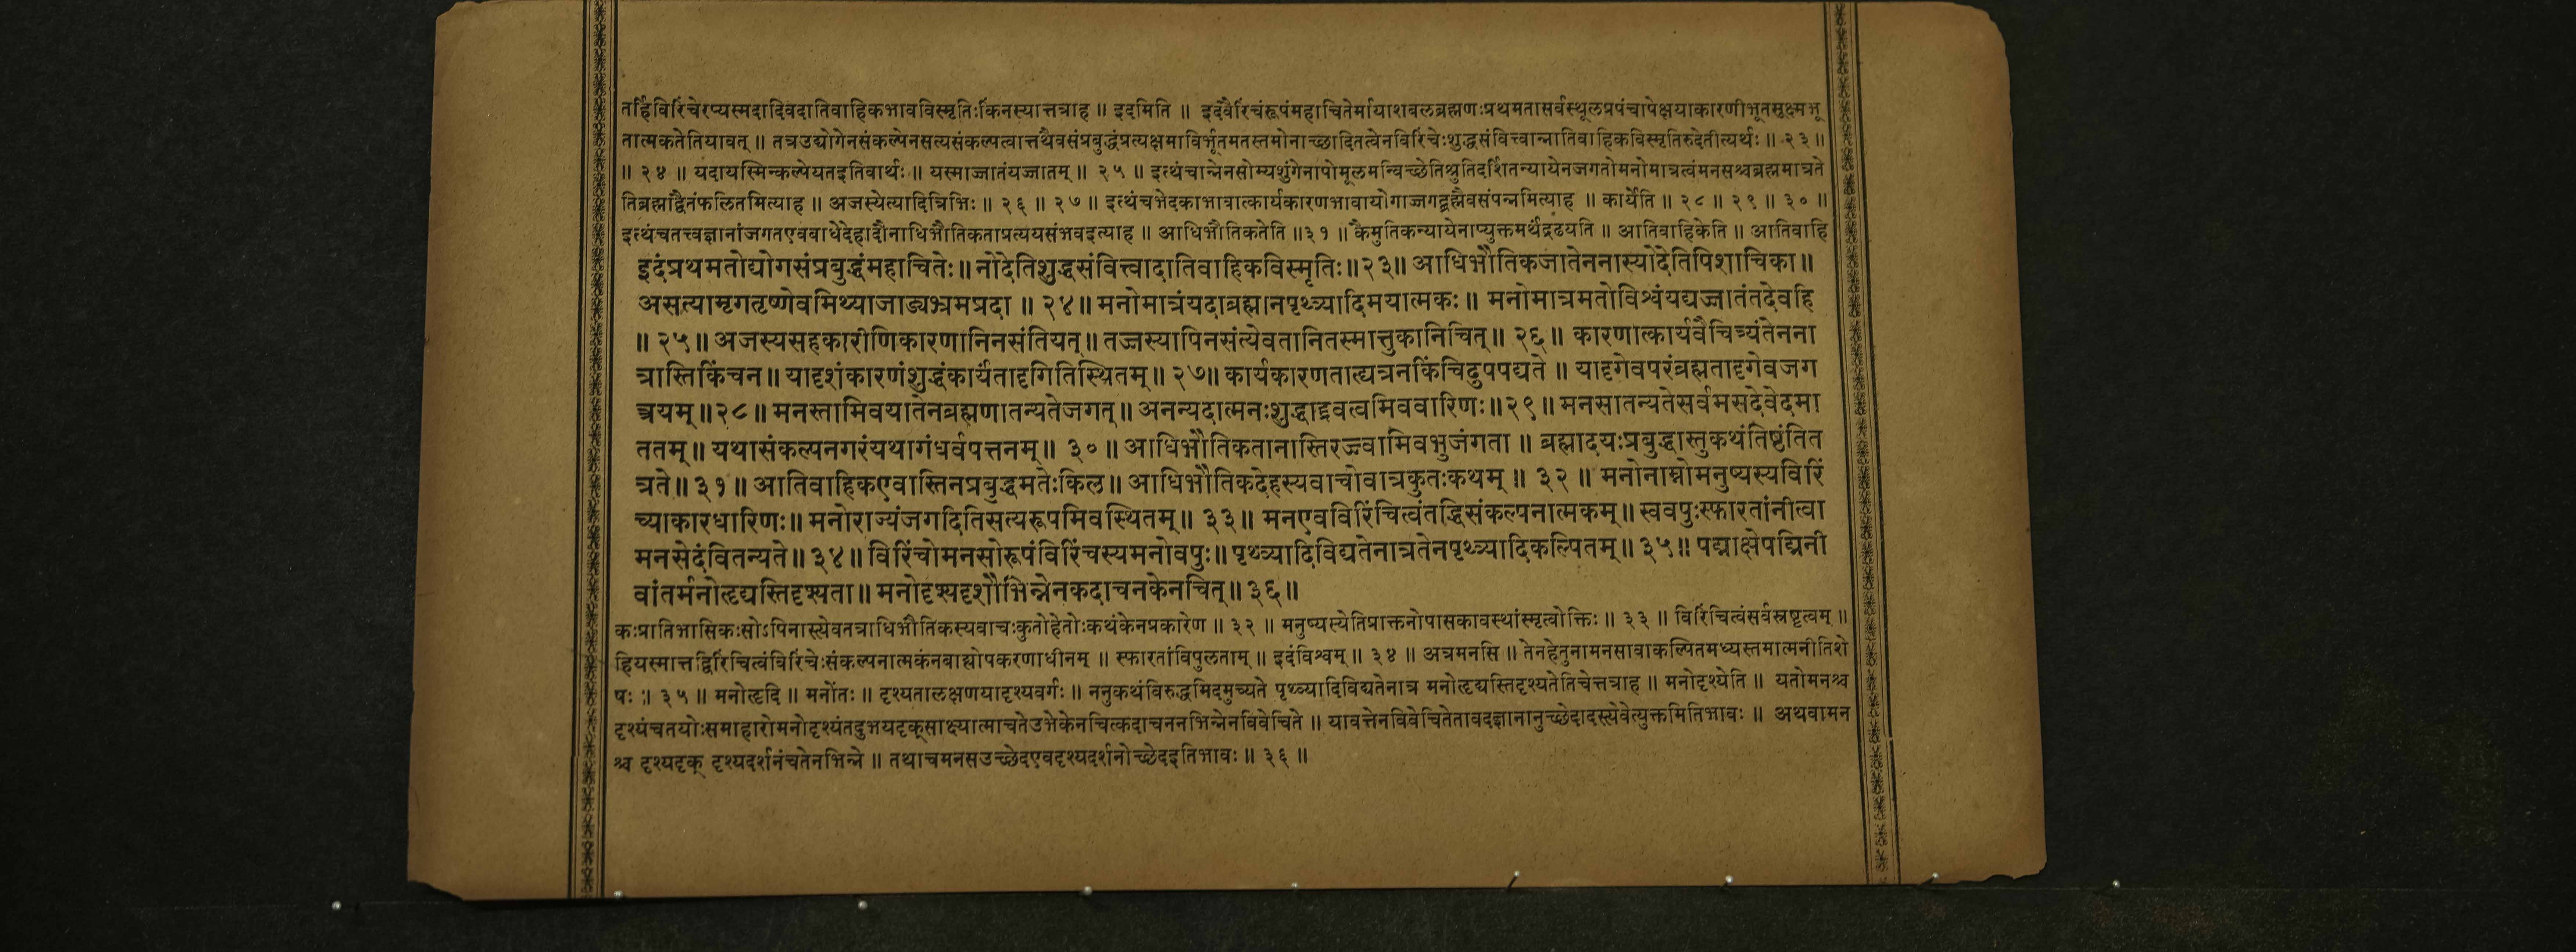 तर्हिविरिंचेरप्यस्मदादिवदातिवाहिकभावविस्मृतिःकिंनस्यात्तत्राह ॥ इदमिति ॥ इदंवैरिंचंरूपंमहाचितेर्मायाशबलब्रह्मणःप्रथमतासर्वस्थूलप्रपंचापेक्षयाकारणीभूतसूक्ष्मभू
तात्मकतेतियावत् ॥ तत्रउद्योगेनसंकल्पेनसत्यसंकल्पत्वात्तथैवसंप्रबुद्धंप्रत्यक्षमाविर्भूतमतस्तमोनाच्छादितत्वेनविरिंचेःशुद्धसंवित्त्वान्नातिवाहिकविस्मृतिरुदेतीत्यर्थः ॥ २३ ॥
॥ २४ ॥ यदायस्मिन्कल्पेयतइतिवार्थः ॥ यस्माज्जातंयज्जातम् ॥ २५ ॥ इत्थंचान्नेनसोम्यशुंगेनापोमूलमन्विच्छेतिश्रुतिदर्शितन्यायेनजगतोमनोमात्रत्वंमनसश्चब्रह्ममात्रते
तिब्रह्माद्वैतंफलितमित्याह ॥ अजस्येत्यादित्रिभिः ॥ २६ ॥ २७ ॥ इत्थंचभेदकाभावात्कार्यकारणभावायोगाज्जगद्ब्रह्मैवसंपन्नमित्याह ॥ कार्येति ॥ २८ ॥ २९ ॥ ३० ॥
इत्थंचतत्त्वज्ञानांजगतएवबाधेदेहादौनाधिभौतिकताप्रत्ययसंभवइत्याह ॥ आधिभौतिकतेति ॥३१ ॥ कैमुतिकन्यायेनाप्युक्तमर्थंद्रढयति ॥ आतिवाहिकेति ॥ आतिवाहि
इदंप्रथमतोद्योगसंप्रबुद्धंमहाचितेः ॥ नोदेतिशुद्धसंवित्त्वादातिवाहिकविस्मृतिः ॥२३॥ आधिभौतिकजातेननास्योदेतिपिशाचिका ॥
असत्यामृगतृष्णेवमिथ्याजाड्यभ्रमप्रदा ॥ २४ ॥ मनोमात्रंयदाब्रह्मानपृथ्व्यादिमयात्मकः ॥ मनोमात्रमतोविश्वंयद्यज्जातंतदेवहि
॥ २५ ॥ अजस्यसहकारीणिकारणानिनसंतियत् ॥ तज्जस्यापिनसंत्येवतानितस्मात्तुकानिचित् ॥ २६ ॥ कारणात्कार्यवैचित्र्यंतेनना
त्रास्तिकिंचन ॥ यादृशंकारणंशुद्धंकार्यंतादृगितिस्थितम् ॥ २७॥ कार्यकारणतात्द्यत्रनकिंचिदुपपद्यते ॥ यादृगेवपरंब्रह्मतादृगेवजग
त्त्रयम् ॥२८॥ मनस्तामिवयातेनब्रह्मणातन्यतेजगत् ॥ अनन्यदात्मनःशुद्धाद्द्रवत्वमिववारिणः ॥२९॥ मनसातन्यतेसर्वमसदेवेदमा
ततम् ॥ यथासंकल्पनगरंयथागंधर्वपत्तनम् ॥ ३० ॥ आधिभौतिकतानास्तिरज्ज्वामिवभुजंगता ॥ ब्रह्मादयःप्रबुद्धास्तुकथंतिष्ठंतित
त्रते ॥ ३१ ॥ आतिवाहिकएवास्तिनप्रबुद्धमतेःकिल ॥ आधिभौतिकदेहस्यवाचोवात्रकुतःकथम् ॥ ३२ ॥ मनोनाम्नोमनुष्यस्यविरिं
च्याकारधारिणः ॥ मनोराज्यंजगदितिसत्यरूपमिवस्थितम् ॥ ३३ ॥ मनएवविरिंचित्वंतद्धिसंकल्पनात्मकम् ॥ स्ववपुःस्फारतांनीत्वा
मनसेदंवितन्यते ॥ ३४ ॥ विरिंचोमनसोरूपंविरिंचस्यमनोवपुः ॥ पृथ्व्यादिविद्यतेनात्रतेनपृथ्व्यादिकल्पितम् ॥ ३५ ॥ पद्माक्षेपद्मिनी
वांतर्मनोत्द्दद्यस्तिदृश्यता ॥ मनोदृश्यदृशौभिन्नेनकदाचनकेनचित् ॥ ३६ ॥
कःप्रातिभासिकःसोऽपिनास्त्येवतत्राधिभौतिकस्यवाचःकुतोहेतोःकथंकेनप्रकारेण ॥ ३२ ॥ मनुष्यस्येतिप्राक्तनोपासकावस्थांस्मृत्वोक्तिः ॥ ३३ ॥ विरिंचित्वंसर्वस्रष्टृत्वम् ॥
हियस्मात्तद्विरिंचित्वंविरिंचेःसंकल्पनात्मकंनबाह्योपकरणाधीनम् ॥ स्फारतांविपुलताम् ॥ इदंविश्वम् ॥ ३४ ॥ अत्रमनसि ॥ तेनहेतुनामनसावाकल्पितमध्यस्तमात्मनीतिशे
षः ॥ ३५ ॥ मनोत्द्ददि ॥ मनोंतः ॥ दृश्यतालक्षणयादृश्यवर्गः ॥ ननुकथंविरुद्धमिदमुच्यते पृथ्व्यादिविद्यतेनात्र मनोत्द्दद्यस्तिदृश्यतेतिचेत्तत्राह ॥ मनोदृश्येति ॥ यतोमनश्च
दृश्यंचतयोःसमाहारोमनोदृश्यंतदुभयदृक्साक्ष्यात्माचतेउभेकेनचित्कदाचननभिन्नेनविवेचिते ॥ यावत्तेनविवेचितेतावदज्ञानानुच्छेदादस्त्येवेत्युक्तमितिभावः ॥ अथवामन
श्च दृश्यदृक् दृश्यदर्शनंचतेनभिन्ने ॥ तथाचमनसउच्छेदएवदृश्यदर्शनोच्छेदइतिभावः ॥ ३६ ॥